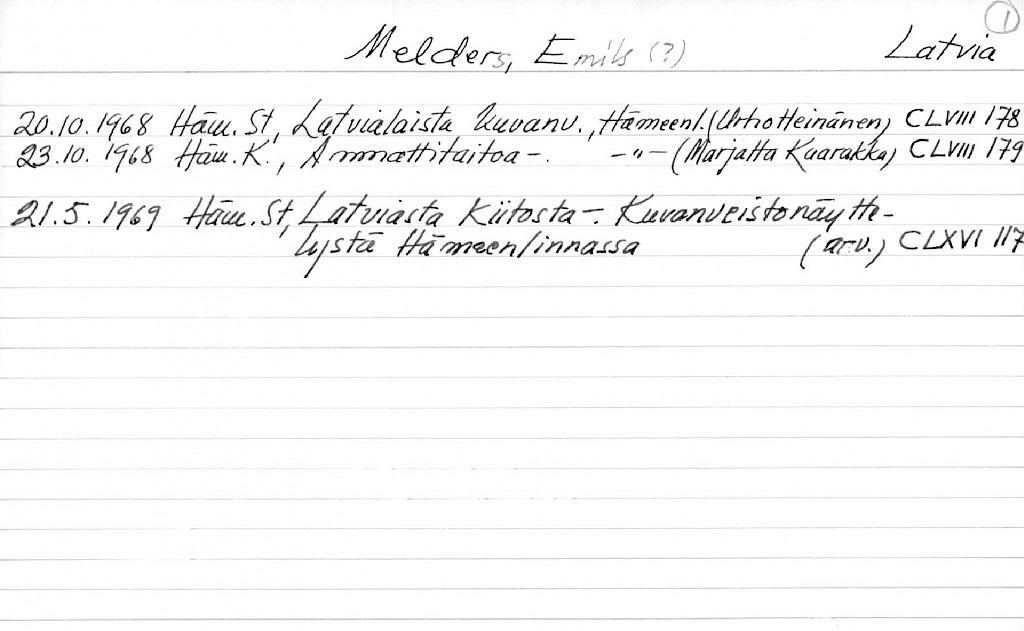 1
Melders, Emils (?) Latvia
20.10.1968 Häm. St, Latvialaista kuvanv., Hämeenl. (Urho Heinänen) CLVIII 178
23.10.1968 Häm. K., Ammattitaitoa -. -"- (Marjatta Kaarakka) CLVIII 179
21.5.1969 Häm. St, Latviasta Kiitosta -. Kuvanveistonäytte-
lystä Hämeenlinnassa (arv.) CLXVI 117